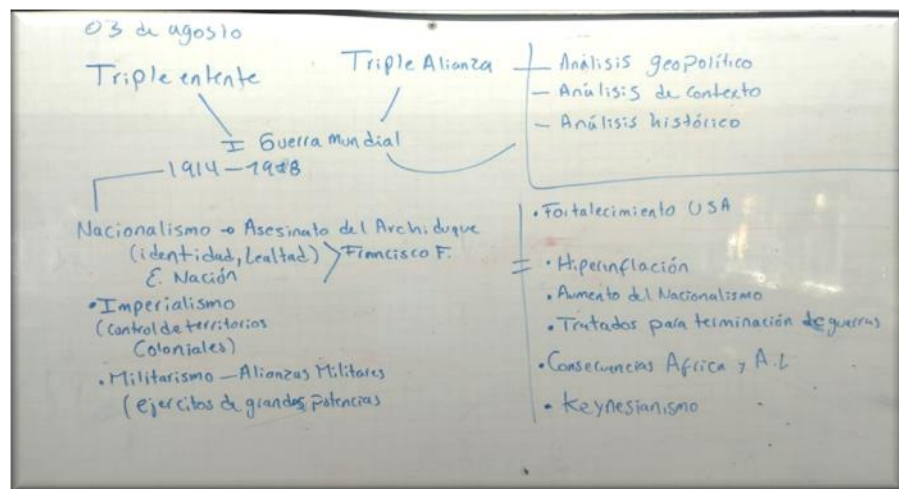 03 de agosto
Triple entente
Triple Alianza
I Guerra Mundial
1914 - 1918
- Análisis geopolítico
- Análisis de contexto
- Análisis histórico
Nacionalismo → Asesinato del Archiduque
(identidad, Lealtad) > Francisco F.
E. Nación
• Imperialismo
(control de territorios
Coloniales)
• Militarismo - Alianzas Militares
(ejercitos de grandes potencias
• Fortalecimiento USA
• Hiperinflación
• Aumento del Nacionalismo
• Tratados para terminación de guerras
• Consecuencias Africa y A.L
• Keynesianismo